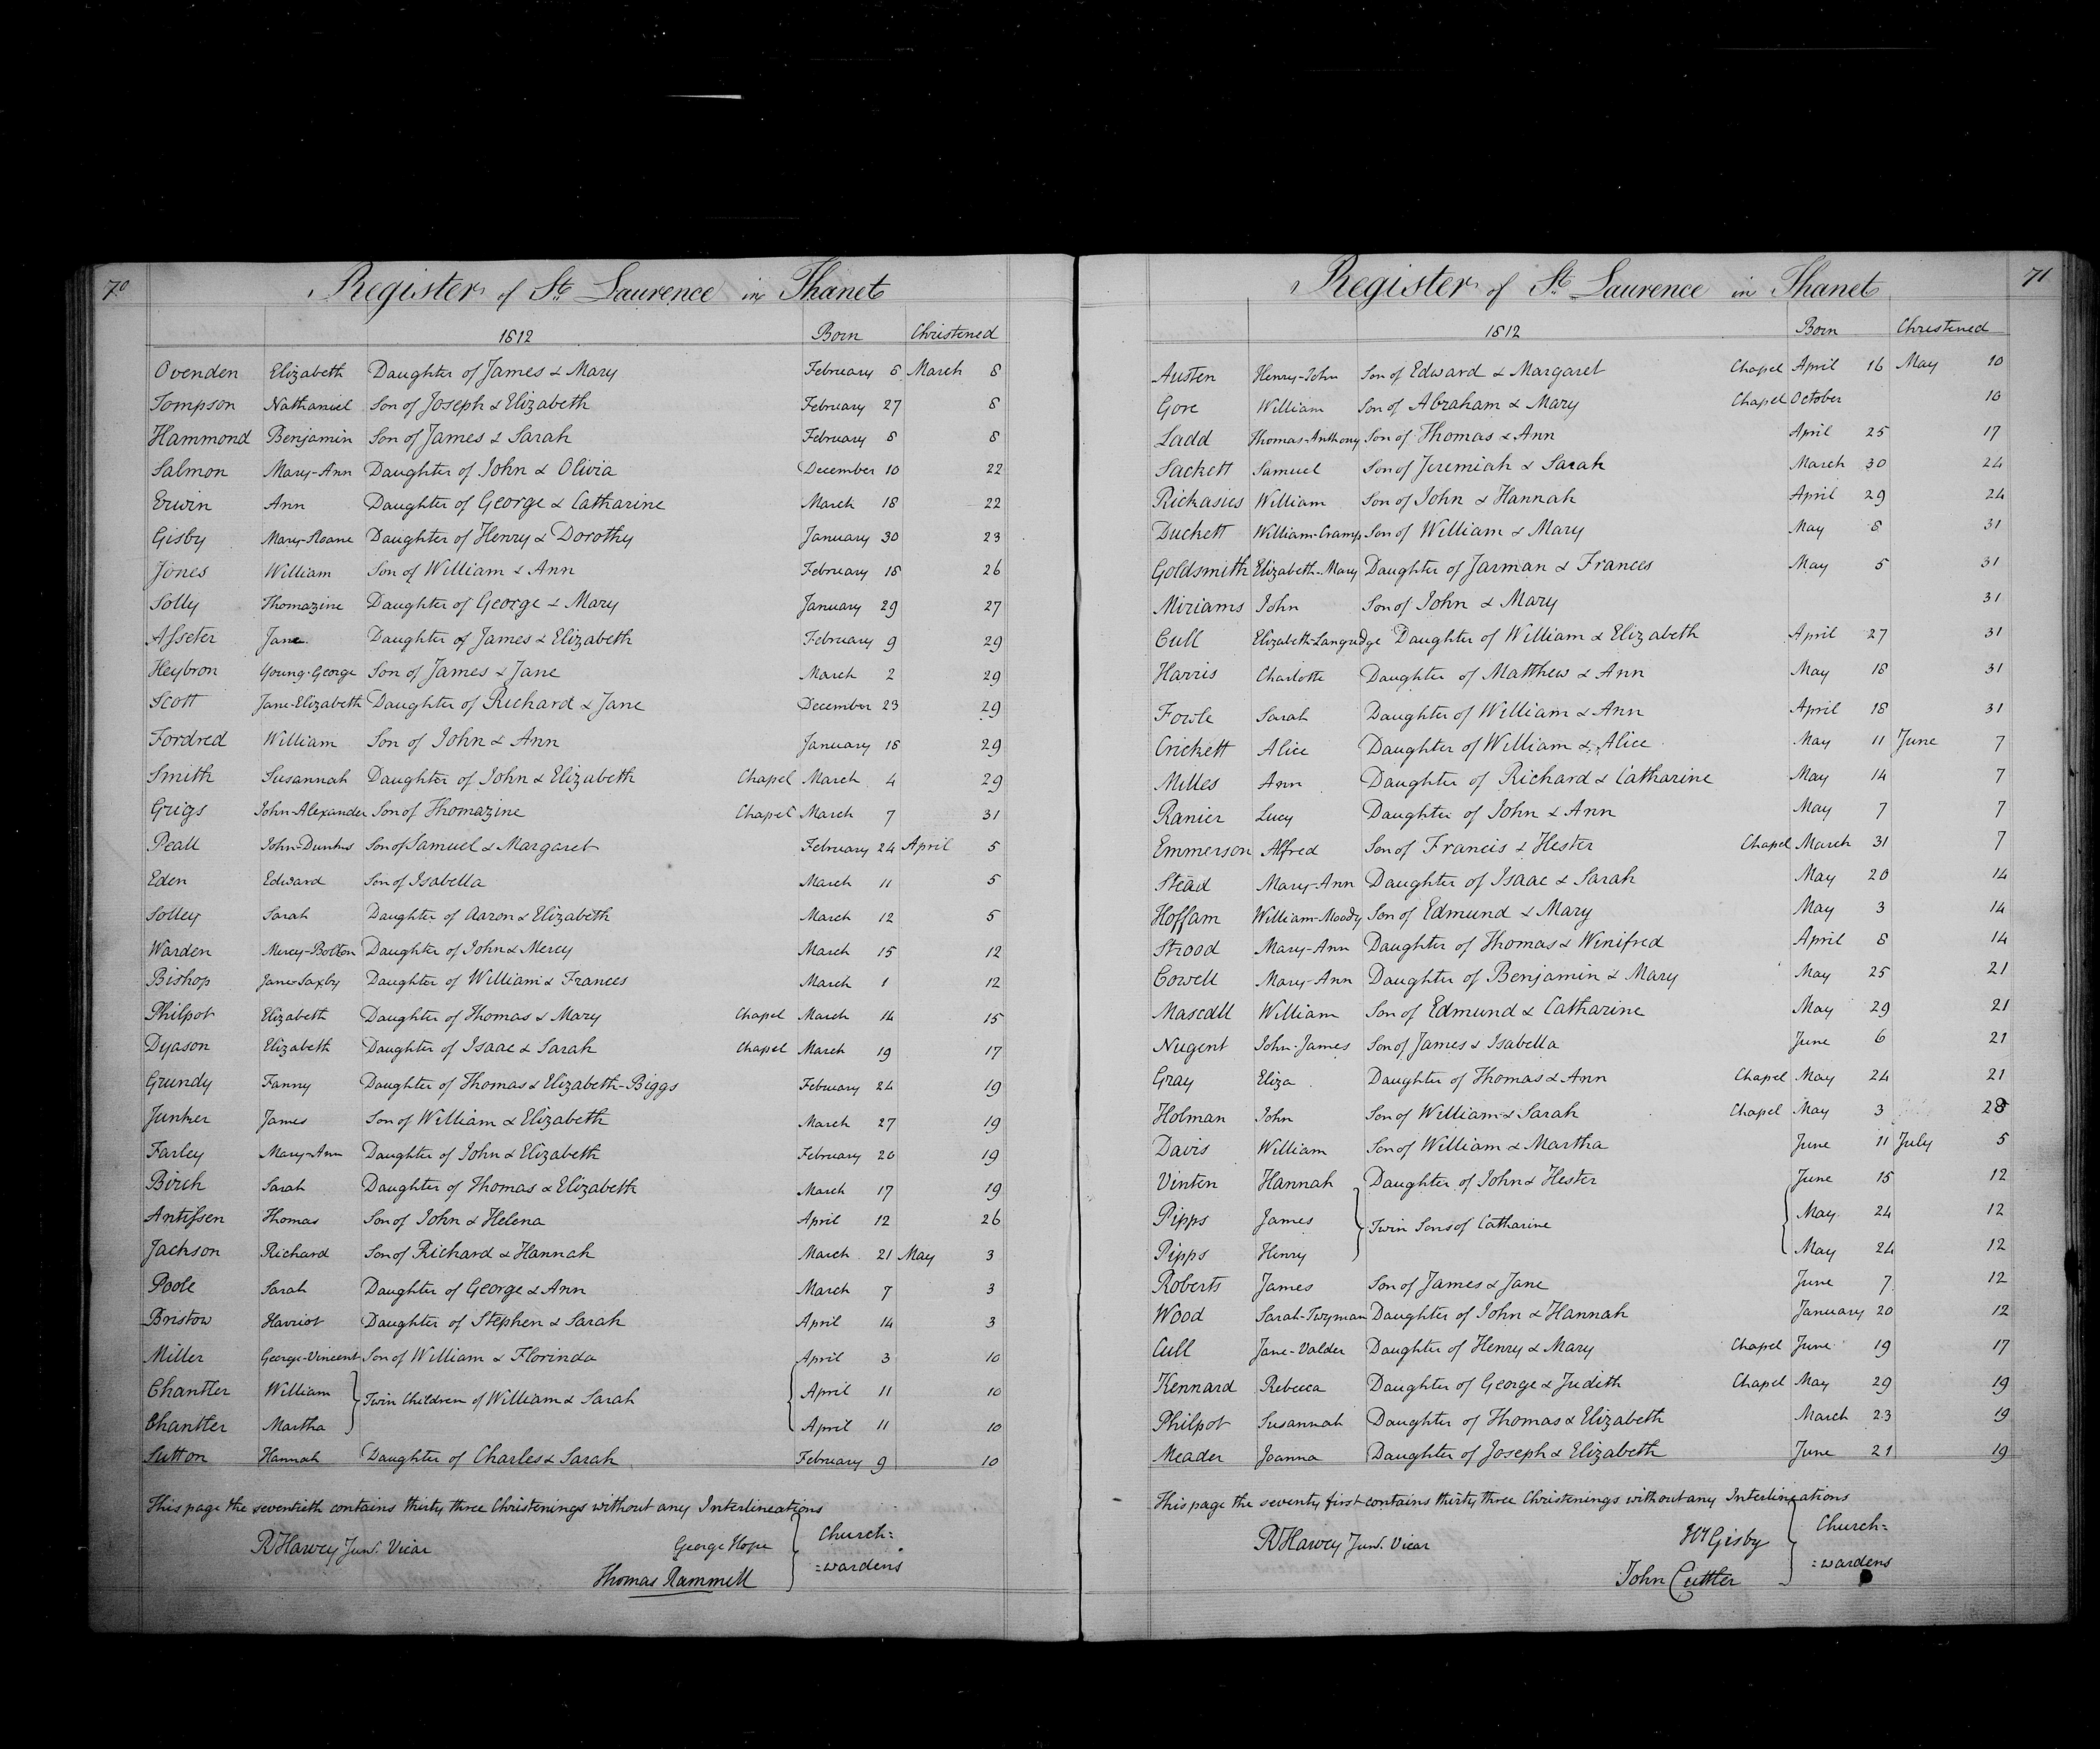 70
Register of St. Laurence in Thanet
1812 Born Christened
Ovenden Elizabeth Daughter of James & Mary February 6 March 8
Tompson Nathaniel Son of Joseph & Elizabeth February 27 8
Hammond Benjamin Son of James & Sarah February 8 8
Salmon Mary-Ann Daughter of John & Olivia December 10 22
Erwin Ann Daughter of George & Catharine March 18 22
Gisby Mary-Sloane Daughter of Henry & Dorothy January 30 23
Jones William Son of William & Ann February 18 26
Solly Thomazine Daughter of George & Mary January 29 27
Asseter Jane Daughter of James & Elizabeth February 9 29
Heybron Young-George Son of James & Jane March 2 29
Scott Jane-Elizabeth Daughter of Richard & Jane December 23 29
Fordred William Son of John & Ann January 18 29
Smith Susannah Daughter of John & Elizabeth Chapel March 4 29
Grigs John-Alexander Son of Thomazine Chapel March 7 31
Peall John- Son of Samuel & Margaret February 24 April 5
Eden Edward Son of Isabella March 11 5
Solley Sarah Daughter of Aaron & Elizabeth March 12 5
Warden Mercy-Bolton Daughter of John & Mercy March 15 12
Bishop Jane-Saxby Daughter of William & Frances March 1 12
Philpot Elizabeth Daughter of Thomas & Mary Chapel March 14 15
Dyason Elizabeth Daughter of Isaac & Sarah Chapel March 19 17
Grundy Fanny Daughter of Thomas & Elizabeth-Biggs February 24 19
Junker James Son of William & Elizabeth March 27 19
Farley Mary-Ann Daughter of John & Elizabeth February 20 19
Birch Sarah Daughter of Thomas & Elizabeth March 17 19
Antissen Thomas Son of John & Helena April 12 26
Jackson Richard Son of Richard & Hannah March 21 May 3
Poole Sarah Daughter of George & Ann March 7 3
Bristow Harriot Daughter of Stephen & Sarah April 14 3
Miller George-Vincent Son of William & Florinda April 3 10
Chantler William } Twin Children of William & Sarah { April 11 10
Chantler Martha April 11 10
Sutton Hannah Daughter of Charles & Sarah February 9 10
This page the seventieth contains thirty three Christenings without any Interlineations
R Harvey Junr. Vicar George Hope } Church=
Thomas Rammell =wardens
71
Register of St. Laurence in Thanet
1812 Born Christened
Austen Henry-John Son of Edward & Margaret Chapel April 16 May 10
Gore William Son of Abraham & Mary Chapel October 10
Ladd Thomas-Anthony Son of Thomas & Ann April 25 17
Sackett Samuel Son of Jeremiah & Sarah March 30 24
Rickasies William Son of John & Hannah April 29 24
Duckett William-Cramp Son of William & Mary May 8 31
Goldsmith Elizabeth-Mary Daughter of Jarman & Frances May 5 31
Miriams John Son of John & Mary 31
Cull Elizabeth-Langridge Daughter of William & Elizabeth April 27 31
Harris Charlotte Daughter of Matthew & Ann May 18 31
Fowle Sarah Daughter of William & Ann April 18 31
Crickett Alice Daughter of William & Alice May 11 June 7
Milles Ann Daughter of Richard & Catharine May 14 7
Ranier Lucy Daughter of John & Ann May 7 7
Emmerson Alfred Son of Francis & Hester Chapel March 31 7
Stead Mary-Ann Daughter of Isaac & Sarah May 20 14
Hoffam William-Moody Son of Edmund & Mary May 3 14
Strood Mary-Ann Daughter of Thomas & Winifred April 8 14
Cowell Mary-Ann Daughter of Benjamin & Mary May 25 21
Mascall William Son of Edmund & Catharine May 29 21
Nugent John-James Son of James & Isabella June 6 21
Gray Eliza Daughter of Thomas & Ann Chapel May 24 21
Holman John Son of William & Sarah Chapel May 3 28
Davis William Son of William & Martha June 11 July 5
Vinten Hannah Daughter of John & Hester June 15 12
Pipps James } Twin Sons of Catharine { May 24 12
Pipps Henry May 24 12
Roberts James Son of James & Jane June 7 12
Wood Sarah-Twyman Daughter of John & Hannah January 20 12
Cull Jane-Valder Daughter of Henry & Mary Chapel June 19 17
Kennard Rebecca Daughter of George & Judith Chapel May 29 19
Philpot Susannah Daughter of Thomas & Elizabeth March 23 19
Meader Joanna Daughter of Joseph & Elizabeth June 21 19
This page the seventy first contains thirty three Christenings without any Interlineations
R Harvey Junr. Vicar Wm Gisby } Church=
John Cuttler =wardens